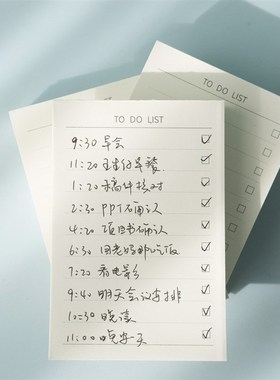 TO DO LIST
TO DO LIST
9:30 早会
11:20
1:20 稿件核对
2:30 PPT确认
4:20 项目书确认
6:30 回老妈那吃饭
7:20 看电影
9:40 明天会议安排
10:30 晚读
11:00 晚安